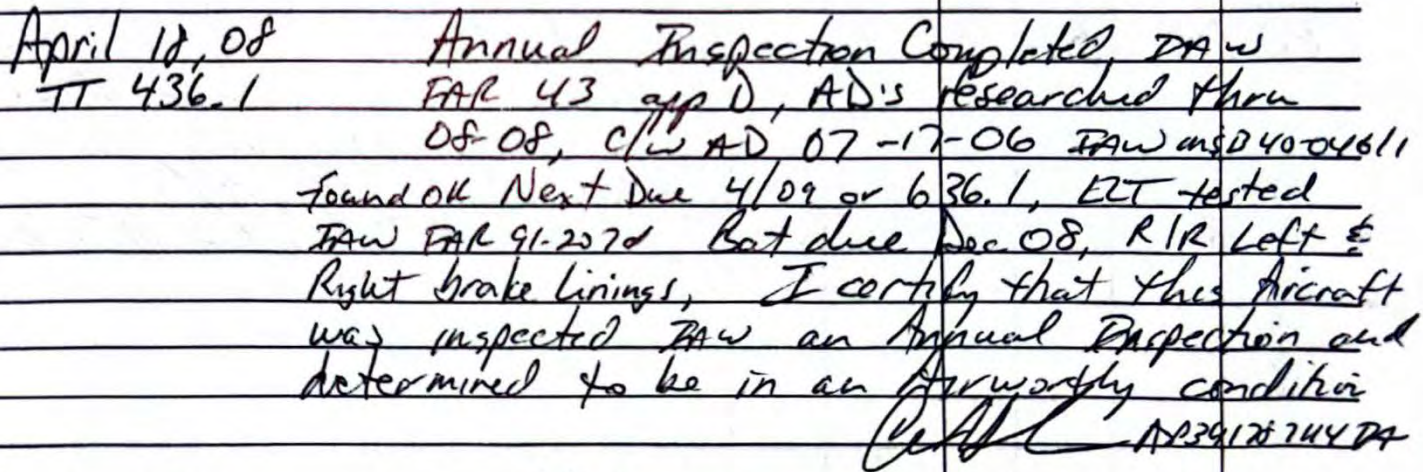 April 18, 08 Annual Inspection Completed, IAW
TT 436.1 FAR 43 app D, AD's researched thru
08-08, C/W AD 07-17-06 IAW msB40-046/1
found ok Next Due 4/09 or 636.1, ELT tested
IAW FAR 91-207d Bat due Dec 08, R/R Left &
Right brake linings, I certify that this Aircraft
was inspected IAW an Annual Inspection and
determined to be in an Airworthy condition